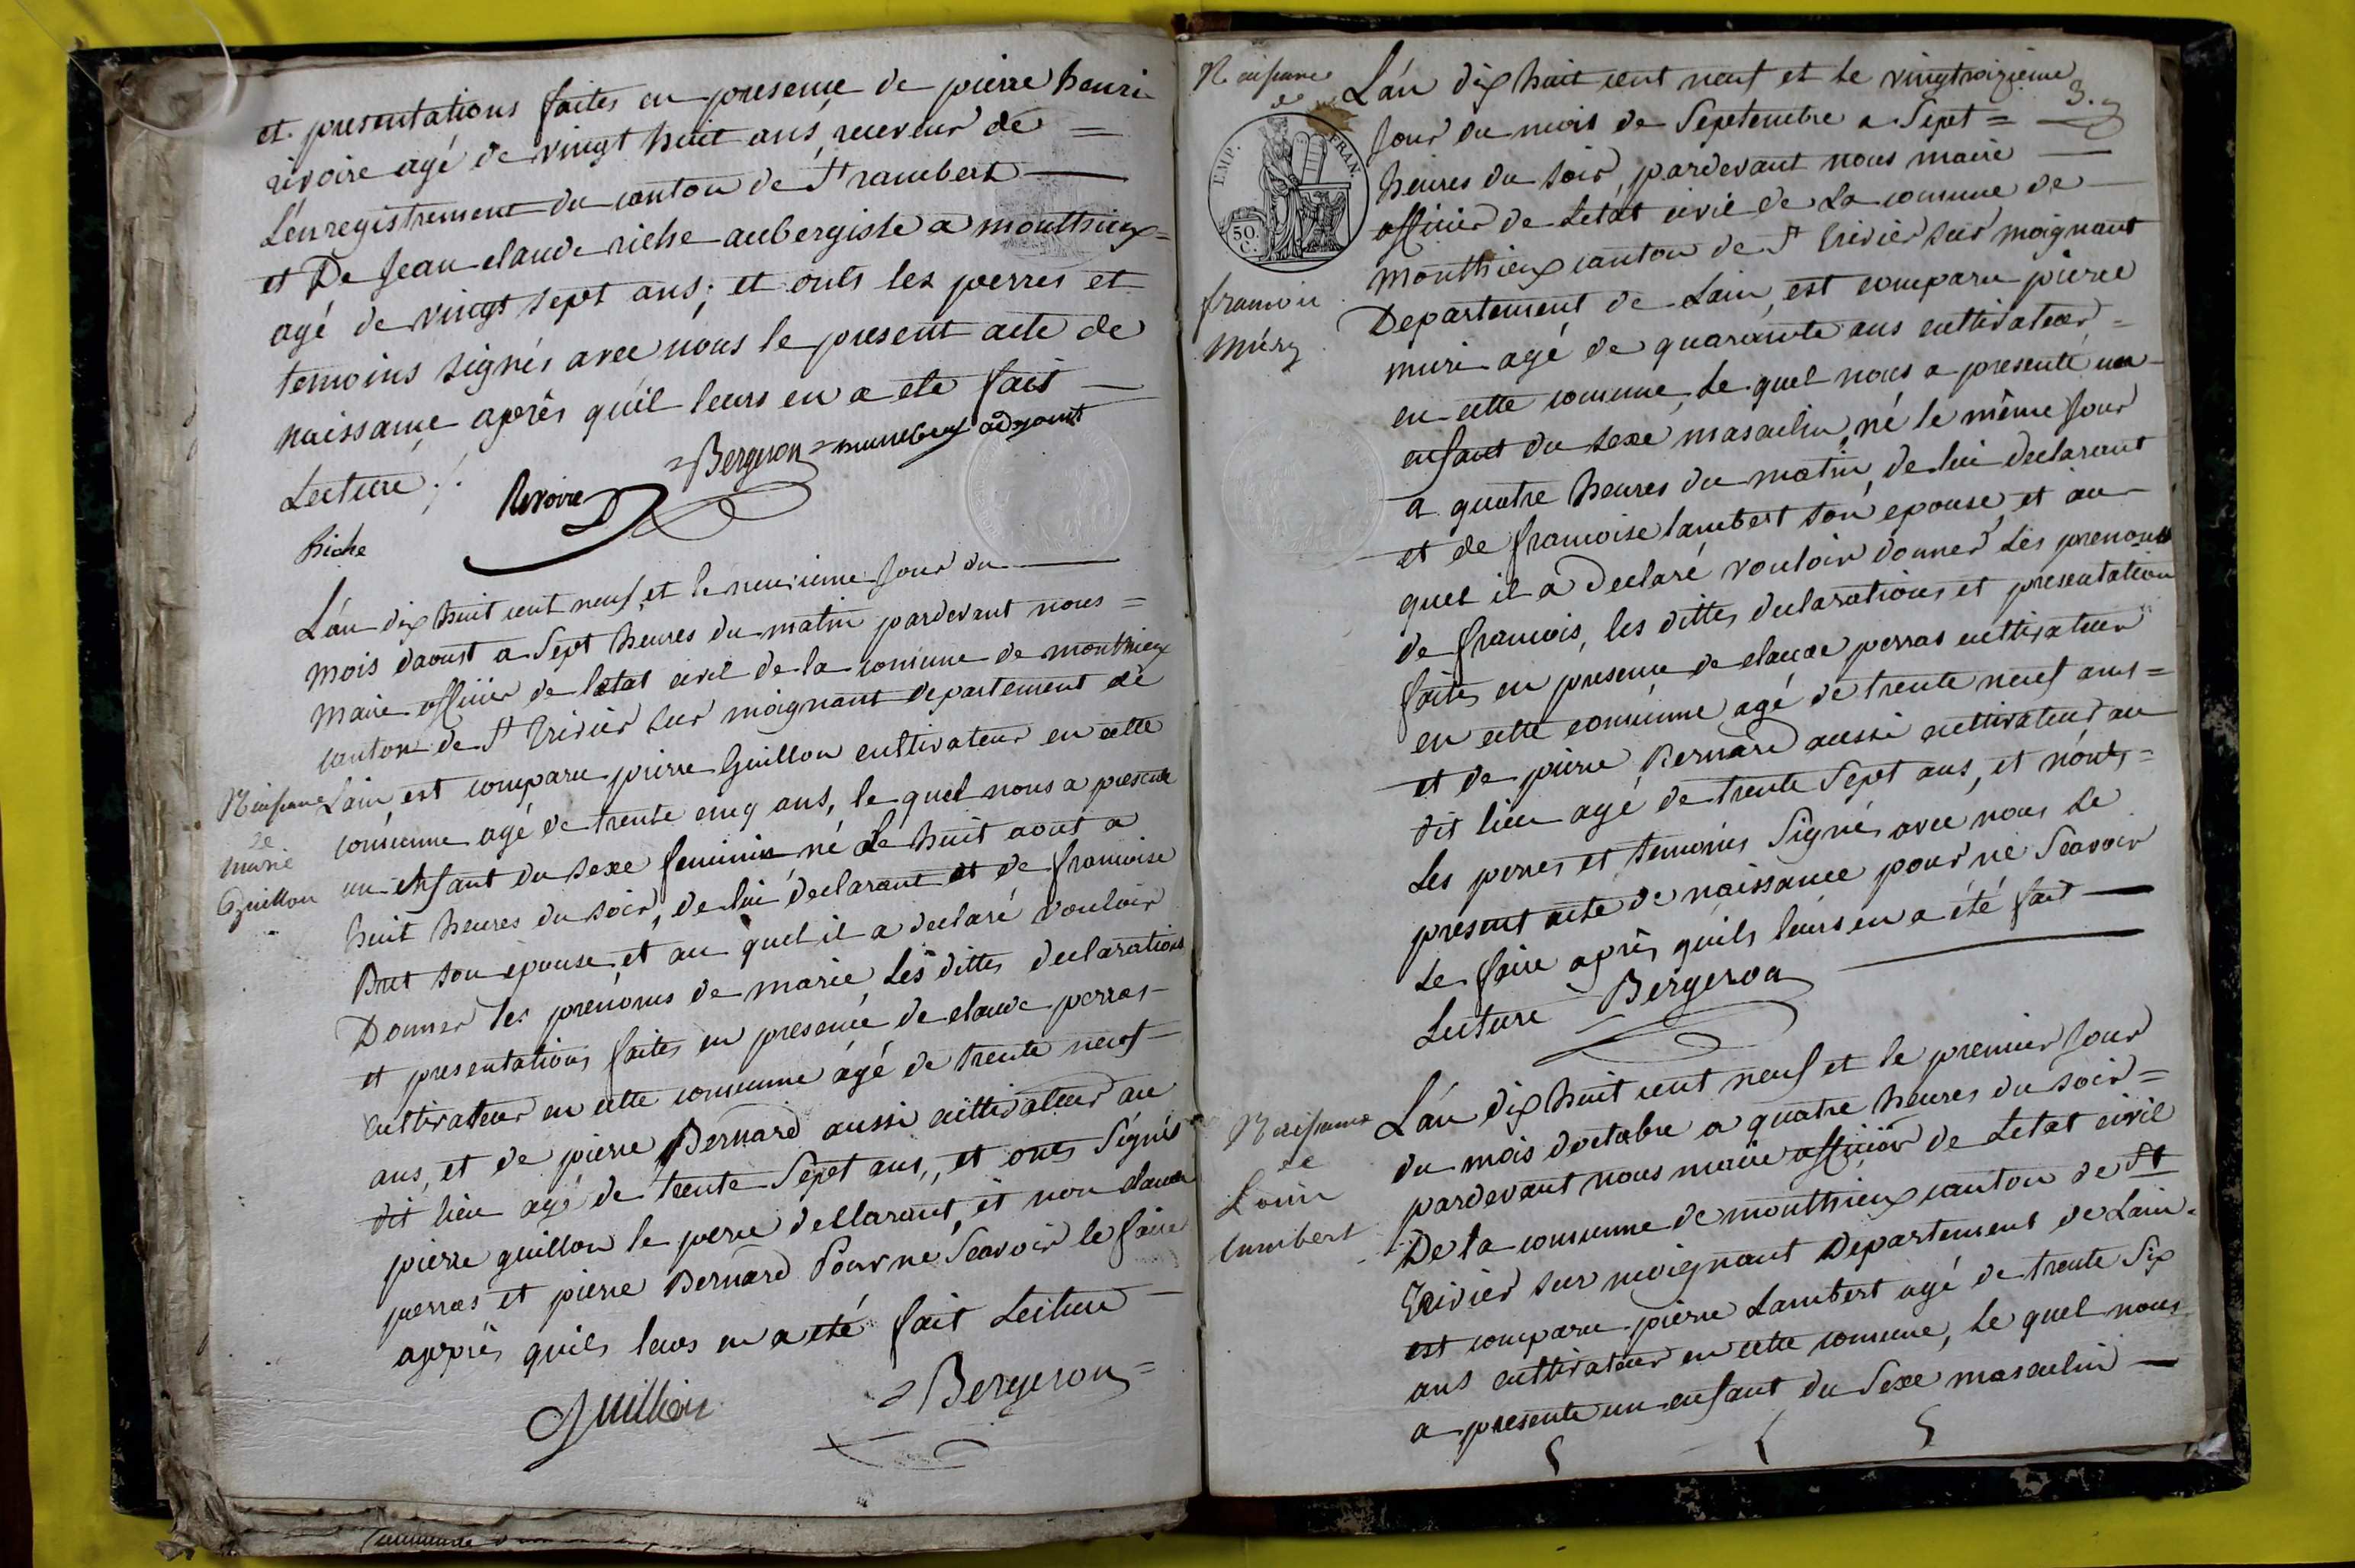 et presentations faites en presence de pierre henri
rivoire agé de vingt huit ans, receveur de =
L'enregistrement du canton de St rambert
et De Jean claude riche aubergiste a monthieux =
agé de vingt sept ans; et onts les perres et
temoins signés avec nous le present acte de
naissance aprés qu'il leurs en a eté fait
Lecture ./.
Bergeron = adjoint
Rivoire
Riche
L'an dix huit cent neuf, et le neuvieme jour du
mois d'aoust a Sept heures du matin pardevant nous =
Maire officier de letat civil de la comune de monthieux
canton de St Trivier sur moignant departement de
Lain, est comparu pierre Guillon cultivateur en cette
comunne agé de trente cinq ans, le quel nous a presenté
un enfant du sexe feminin né Le huit aout a
huit heures du soir, de lui declarant et de francoise
Bret son epouse, et au quel il a declaré vouloir
Donner les prénoms de marie, Les dittes declarations
et presentations faites en presence de claude perras
cultivateur en cette comunne agé de trente neuf
ans, et de pierre Bernard aussi cultivateur au
dit lieu agé de trente Sept ans,, et onts Signés
pierre guillon le perre decllarant, et non claude
perras et pierre Bernard Pour ne Scavoir le faire
apprés quils leurs en a eté fait Lecture
Naissance
de
marie
Guillon
Guillion
= Bergeron =
Naissance
de
EMP. FRAN.
50.
C.
francois
Mury
3.
L'an dix huit cent neuf et le vingtroizieme
Jour du mois de Septembre a Sept =
heures du soir, pardevant nous maire
officier de Letat civil de La comune de
Monthieux canton de St Trivier sur moignant
Departement de Lain, est comparu pierre
muri agé de quarante ans cultivateur =
en cette comune, Le quel nous a presenté un
enfant du sexe masculin, né le même Jour
a quatre heures du matin, de lui declarant
et de francoise lambert son epouse, et au
quel il a Declaré vouloir donner Les prenoms
de francois, les dittes declarations et presentation
faites en presence de claude perras cultivateur
en cette comunne agé de trente neuf ans =
et de pierre Bernard aussi cultivateur au
dit lieu agé de trente Sept ans, et n'onts =
Les perres et temoins Signés avec nous Le
present acte de naissance pour ne Scavoir
Le faire aprés quils leurs en a été fait
Lecture Bergeron
Naissance
de
Louis
Lambert
L'an dix huit cent neuf et le premier Jour
du mois doctobre a quatre heures du soir =
pardevant nous maire officier de Letat civil
De la comunne de monthieux canton de St
Trivier sur moignant Departement de Lain =
est comparu pierre Lambert agé de trente Six
ans cultivateur en cette comune, Le quel nous
a presenté un enfant du Sexe masculin